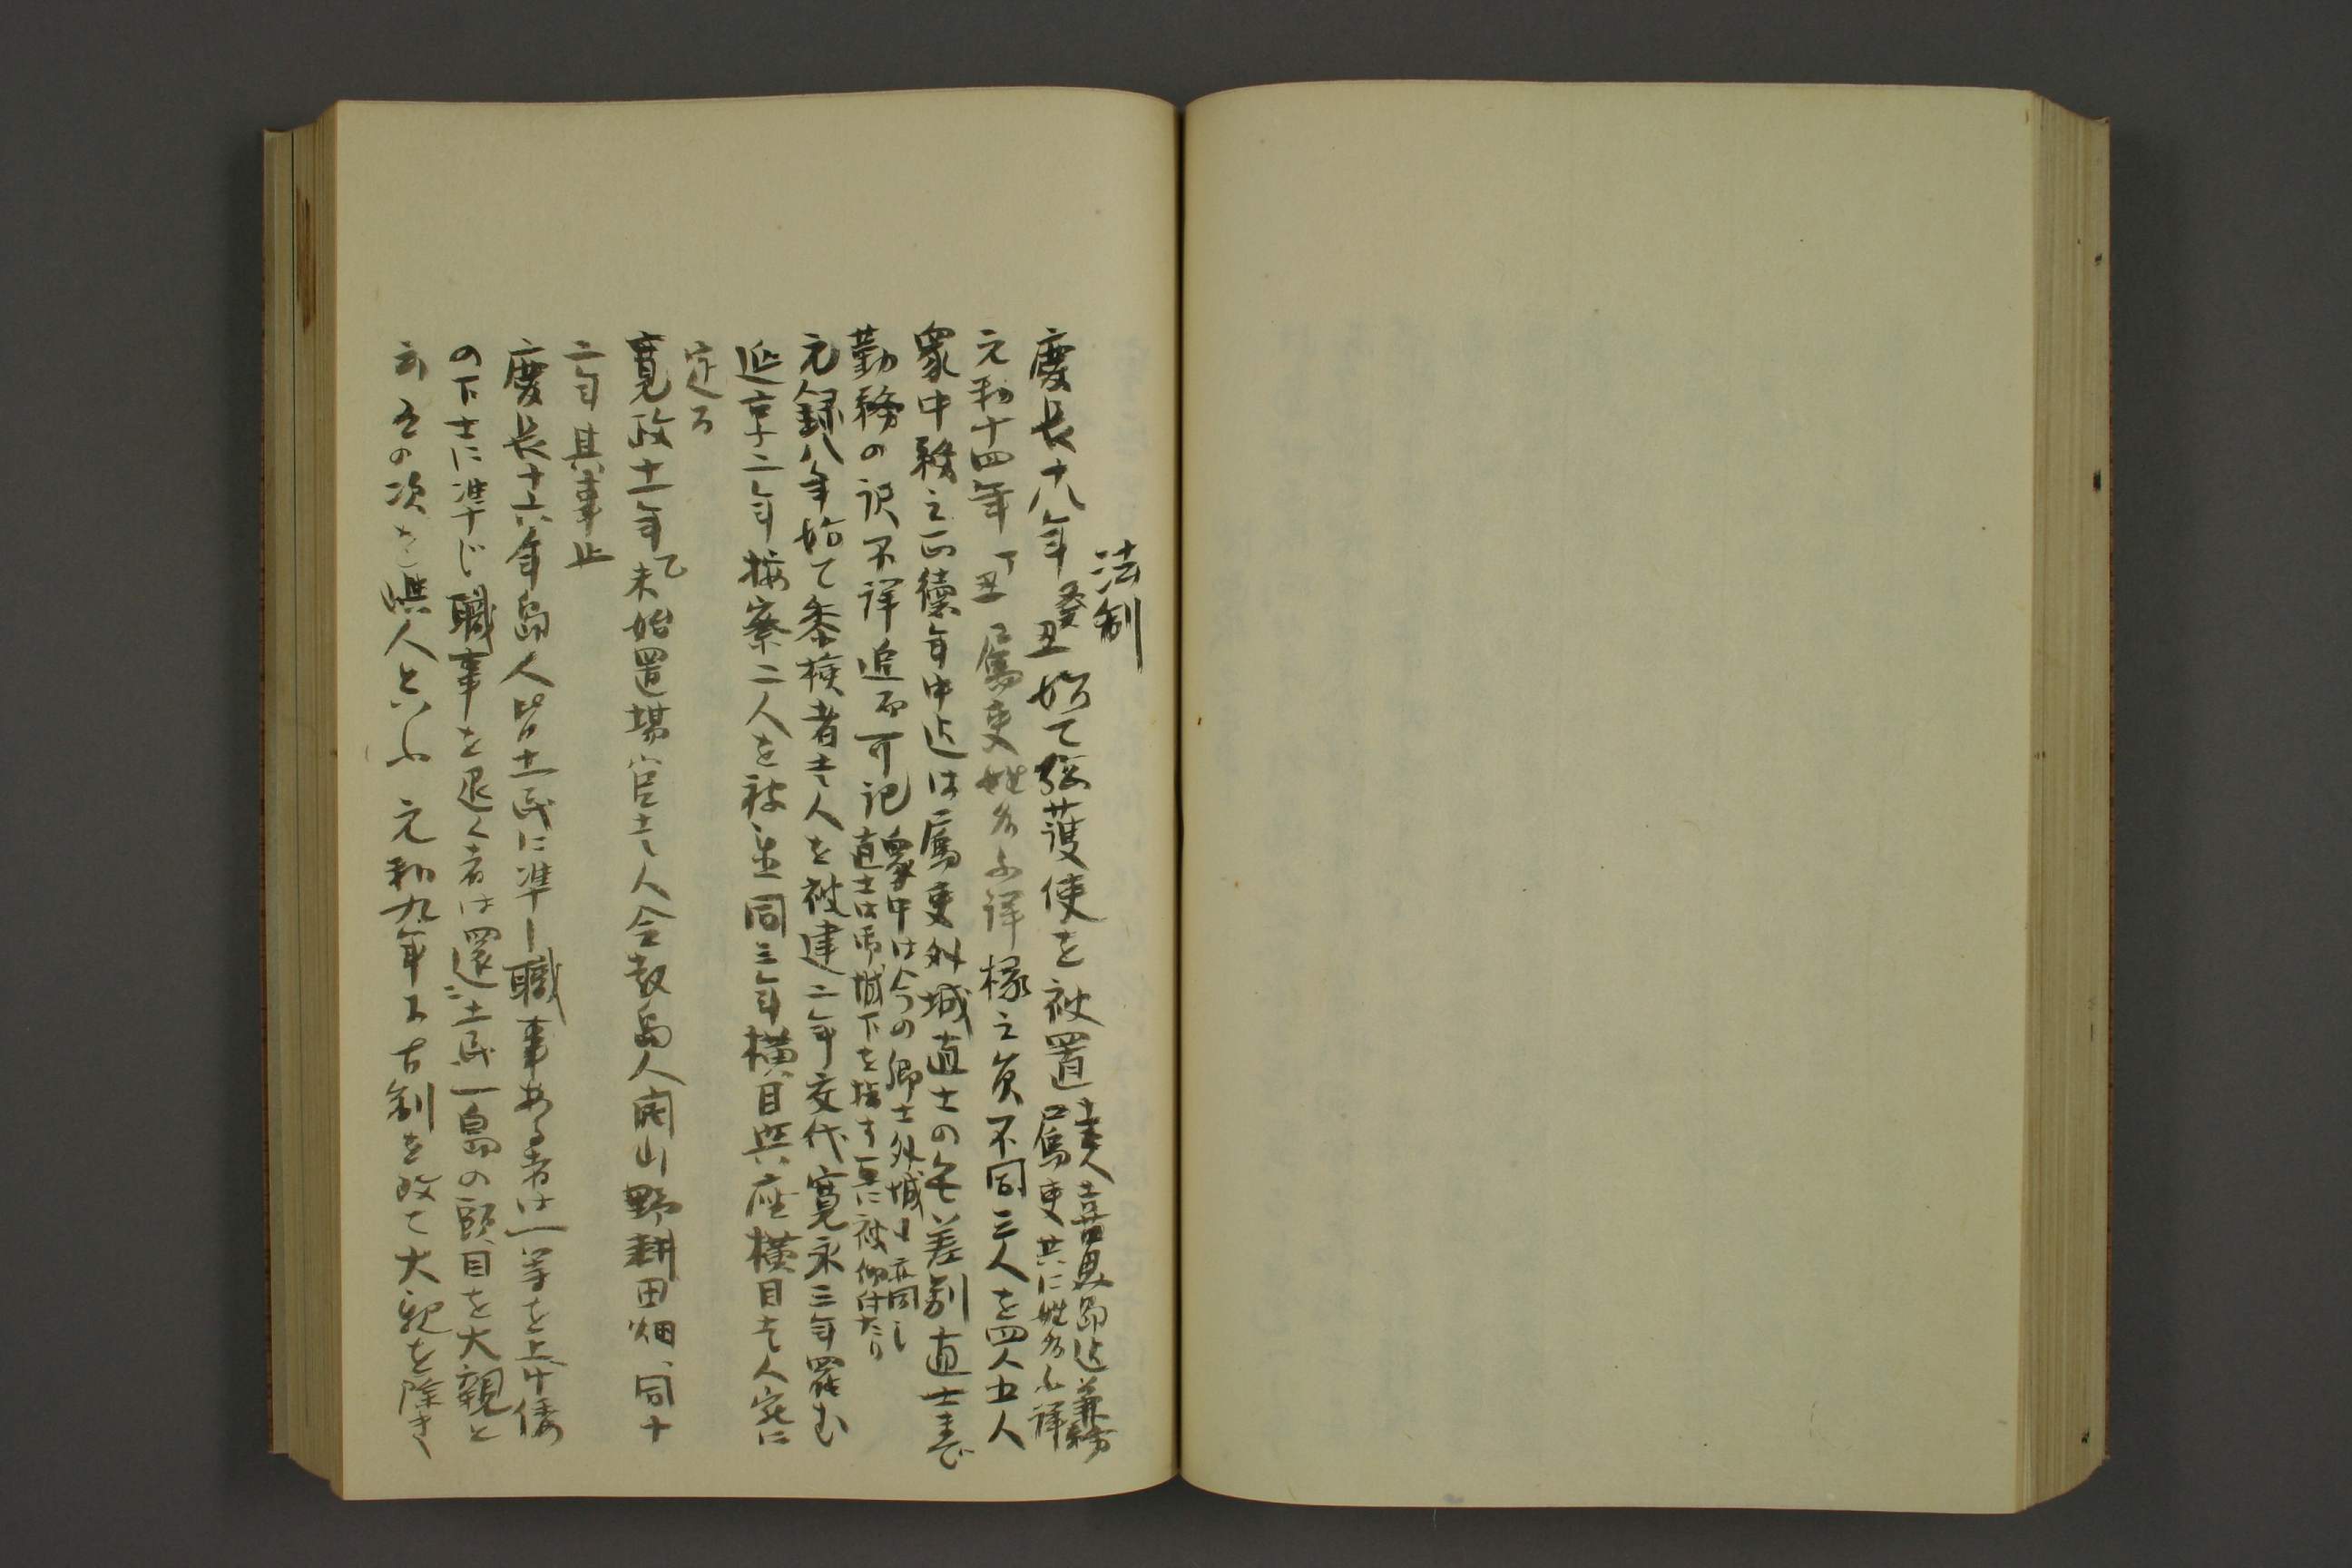 法制
慶長十八年癸丑始て弥護使を被置壱人喜界島迄兼務
属吏共に姓名不詳
元和十四年丁丑属吏姓名不詳横之負不同三人を四人五人
衆中務之正徳年中迄は属吏外城直士の無差別直士まで
勤務の訳不詳追而可記衆中は今の郷士外城士亦同し
直士は御城下を指す玉に被仰付たり
元録八年始て黍検者壱人を被建二年交代寛永三年罷む
延享二年按察二人を被重同三年横目與座横目壱人宛に
定る
寛政十一年乙未始置場官壱人令教島人開山野耕田畑、同十
二年其事止
慶長十六年島人皆土民に準し職事ある者は一等を上ケ倭
の下士に準じ職事を退く者は還土民一島の頭目を大親と
云其の次を與人と云ふ元和九年に古制を改て大親を除き